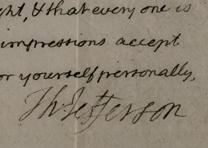 ght, & that every one is
impressions accept
or yourself personally,
Th Jefferson